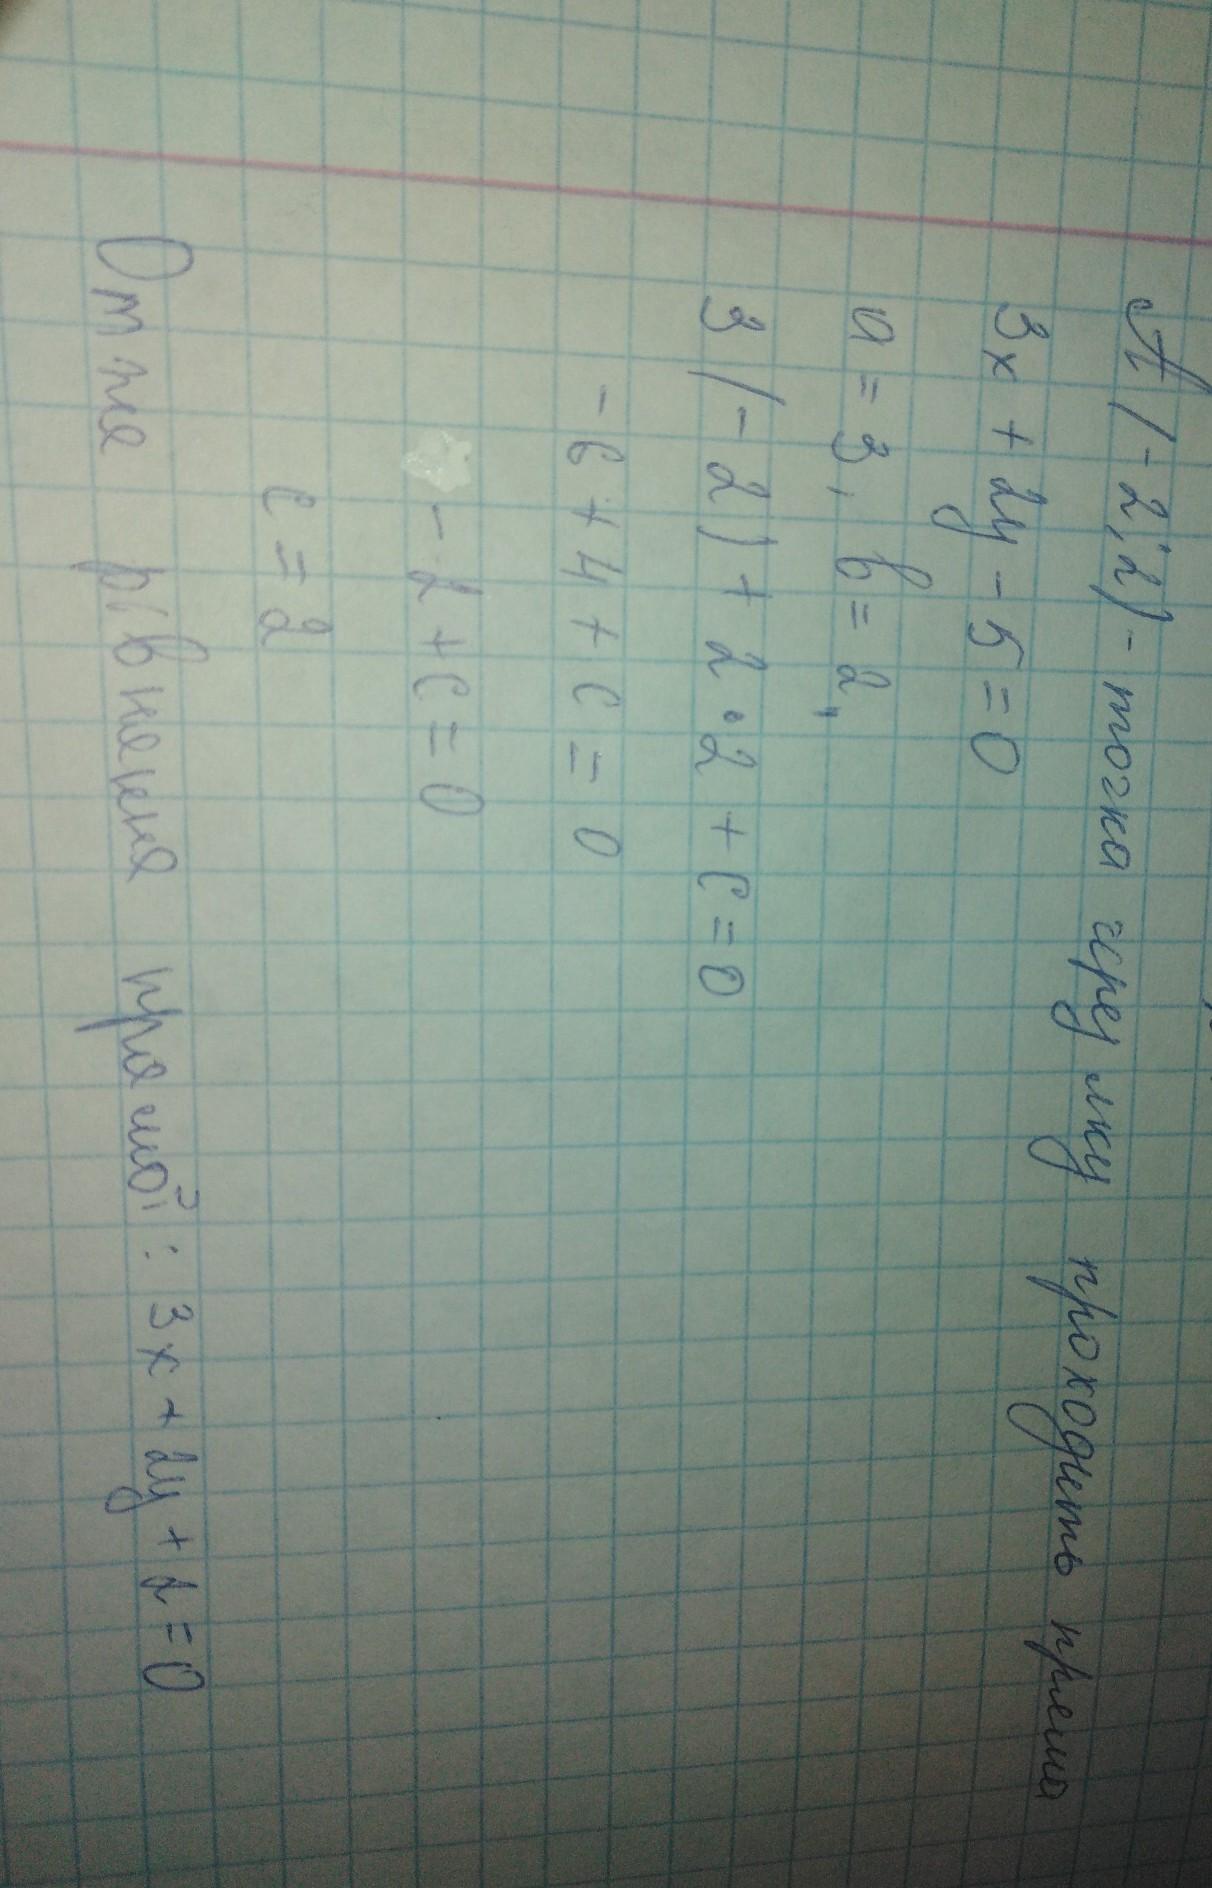 А(-2; 2) - точка через яку проходить пряма
3x + 2y - 5 = 0
a = 3, b = 2,
3(-2) + 2 • 2 + c = 0
-6 + 4 + c = 0
-2 + c = 0
c = 2
Отже рівненя прямої: 3x + 2y + 2 = 0